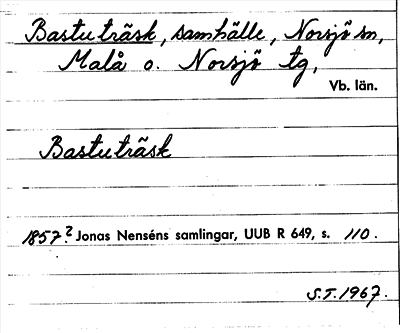 Bastuträsk, samhälle, Norsjö sn,
Malå o. Norsjö tg,
Vb. län.
Bastuträsk
1857? Jonas Nenséns samlingar, UUB R 649, s. 110.
S.T. 1967.